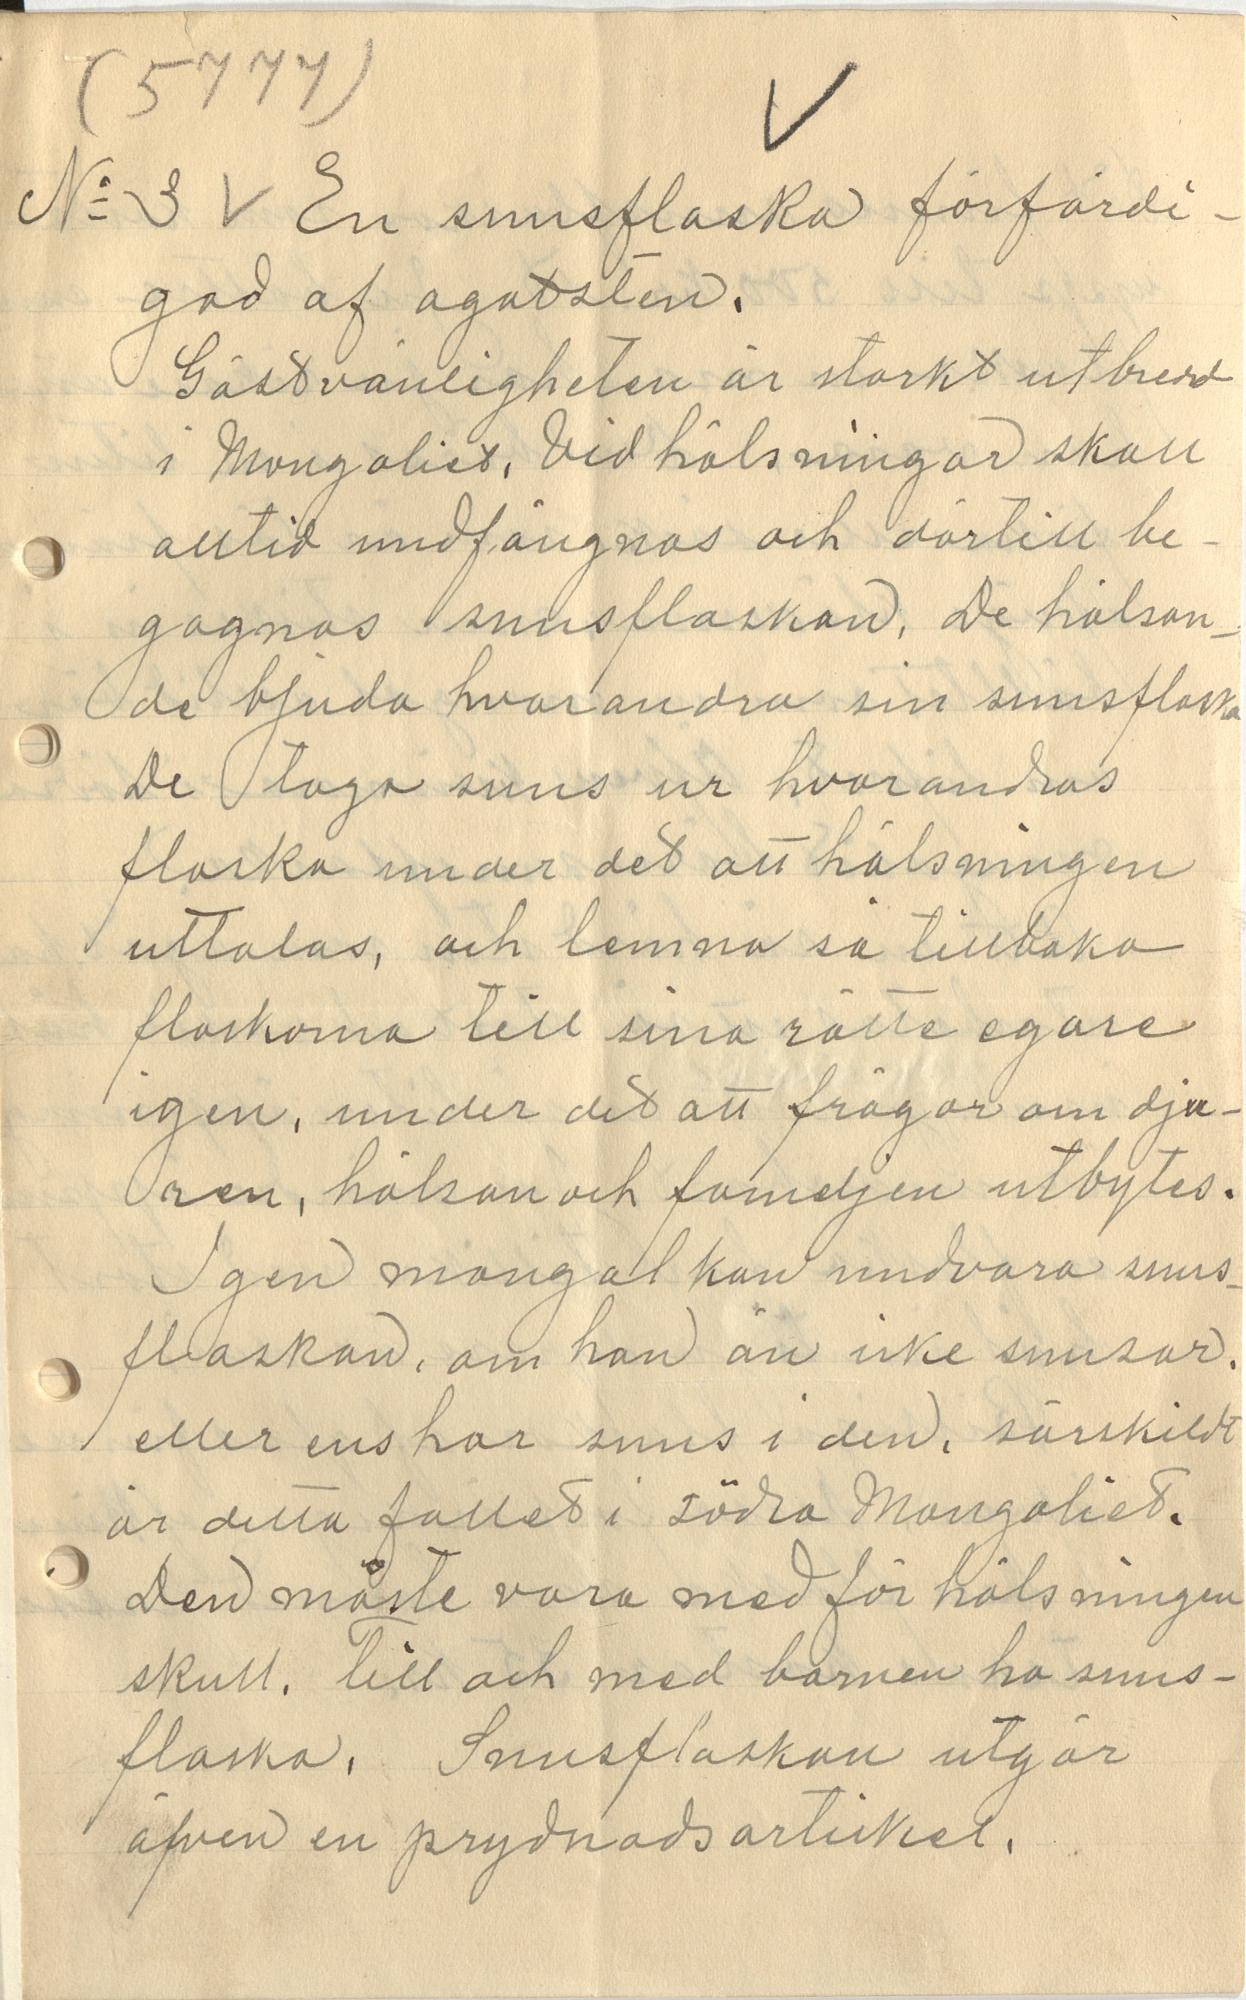 (5777)
V
№ 3 V En snusflaska förfärdi-
gad af agatsten.
Gästvänligheten är starkt utbredd
i Mongoliet. Vid hälsningar skall
alltid undfängnas och därtill be-
gagnas snusflaskan. De hälsan-
de bjuda hvarandra sin snusflaska
De taga snus ur hvarandras
flaska under det att hälsningen
uttalas, och lemna så tillbaka
flaskorna till sina rätte egare
igen, under det att frågor om dju-
ren, hälsan och familjen utbytes.
Igen mongol kan undvara snus-
flaskan, om han än icke snusar.
eller ens har snus i den, särskildt
är detta fallet i södra Mongoliet.
Den måste vara med för hälsningen
skull. Till och med barnen ha snus-
flaska. Snusflaskan utgör
äfven en prydnadsartikel.